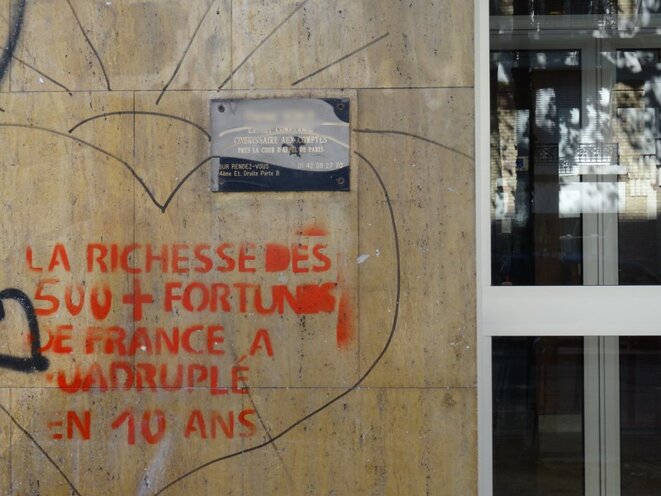 COMMISSAIRE AUX COMPTES
PRES LA COUR D'APPEL DE PARIS
SUR RENDEZ-VOUS 01 42 08 27 70
4ème Et. Droite Porte B
LA RICHESSE DES
500 + FORTUNES
DE FRANCE A
QUADRUPLÉ
EN 10 ANS